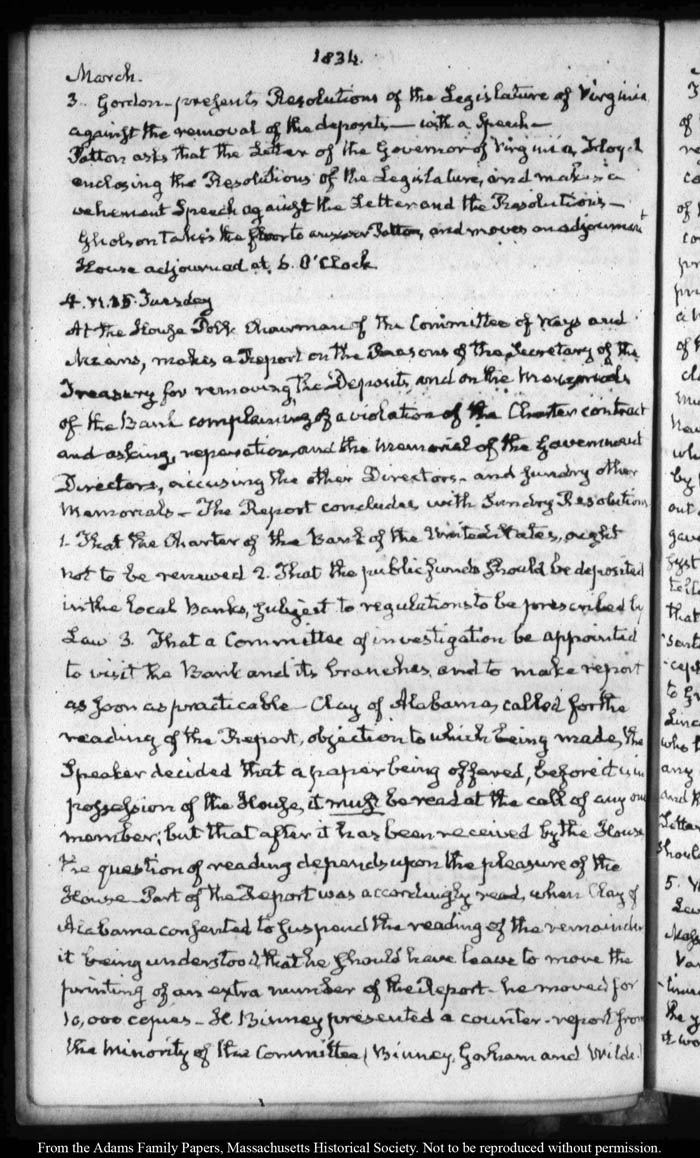 1834.
March.
3. Gordon presents Resolutions of the Legislature of Virginia
against the removal of the deposits — with a Speech —
Patton asks that the Letter of the Governor of Virginia, Floyd
enclosing the Resolutions of the Legislature, and makes a
vehement Speech against the Letter and the Resolutions —
Gholson takes the floor to answer Patton, and moves an adjournment
House adjourned at 5. O'Clock
4. VI. 15. Tuesday
At the House Polk Chairman of the Committee of Ways and
Means, makes a Report on the Reasons of the Secretary of the
Treasury for removing the Deposits, and on the Memorials
of the Bank complaining of a violation of the Charter contract
and asking, reparation, and the memorial of the Government
Directors, accusing the other Directors, and sundry other
Memorials — The Report concludes with Sundry Resolutions
1. That the Charter of the Bank of the United States, ought
not to be renewed 2. That the public funds should be deposited
in the local banks, subject to regulations to be prescribed by
Law 3. That a Committee of investigation be appointed
to visit the Bank and its branches, and to make report
as soon as practicable — Clay of Alabama, called for the
reading of the Report, objection to which being made, the
Speaker decided that a paper being offered, before it is in
possession of the House, it must be read at the call of any one
member; but that after it has been received by the House
the question of reading depends upon the pleasure of the
House — Part of the Report was accordingly read, when Clay of
Alabama consented to suspend the reading of the remainder
it being understood that he should have leave to move the
printing of an extra number of the Report — he moved for
10,000 copies — H Binney presented a counter-report from
the minority of the Committee (Binney, Gorham and Wilde.)
From the Adams Family Papers, Massachusetts Historical Society. Not to be reproduced without permission.